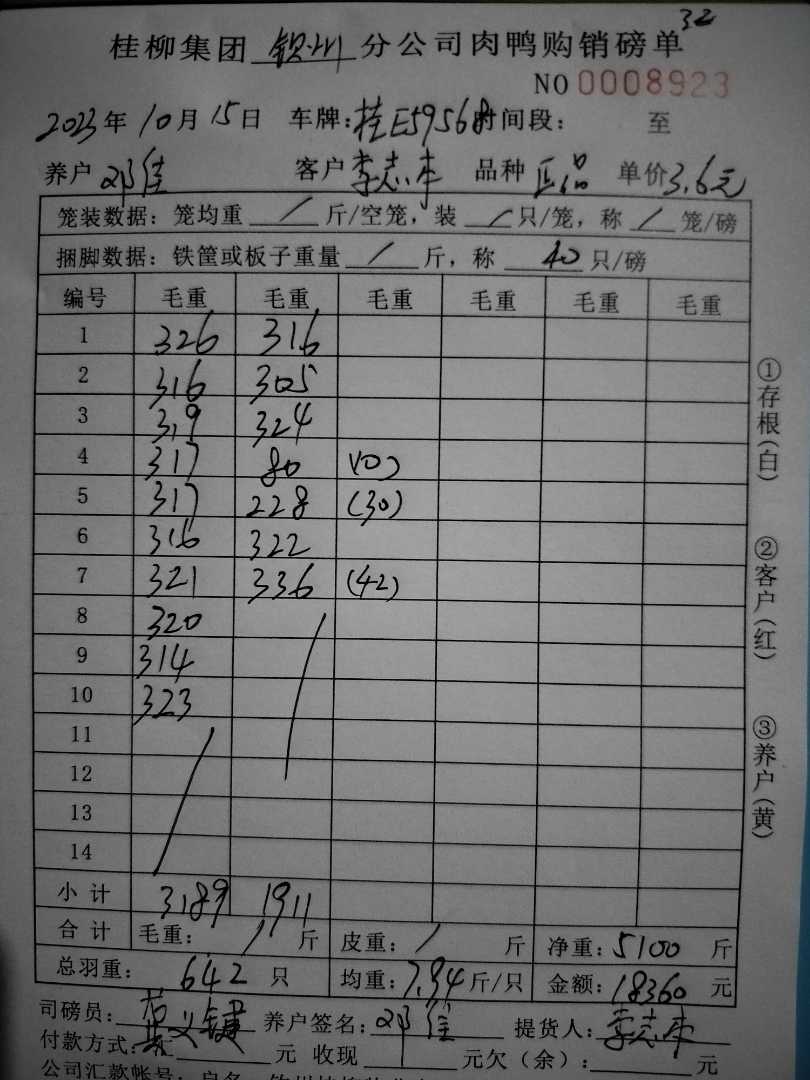 32
桂柳集团 钦州 分公司肉鸭购销磅单
NO 0008923
2023年 10月 15日 车牌:桂E59568 时间段: 至
养户 邓佳 客户 李志本 品种 正品 单价 3.6元
笼装数据: 笼均重 / 斤/空笼, 装 / 只/笼, 称 / 笼/磅
捆脚数据: 铁筐或板子重量 / 斤, 称 40 只/磅
编号 毛重 毛重 毛重 毛重 毛重 毛重
1 326 316
2 316 305
3 319 324
4 317 80 (10)
5 317 228 (30)
6 316 322
7 321 336 (42)
8 320
9 314
10 323
11
12
13
14
小计 3189 1911
合计 毛重: / 斤 皮重: / 斤 净重: 5100 斤
总羽重: 642 只 均重: 7.94 斤/只 金额: 18360 元
司磅员: 义键 养户签名: 邓佳 提货人: 李志本
付款方式: 元 收现 元欠(余): 元
公司汇款帐号: 户名
①存根(白)
②客户(红)
③养户(黄)